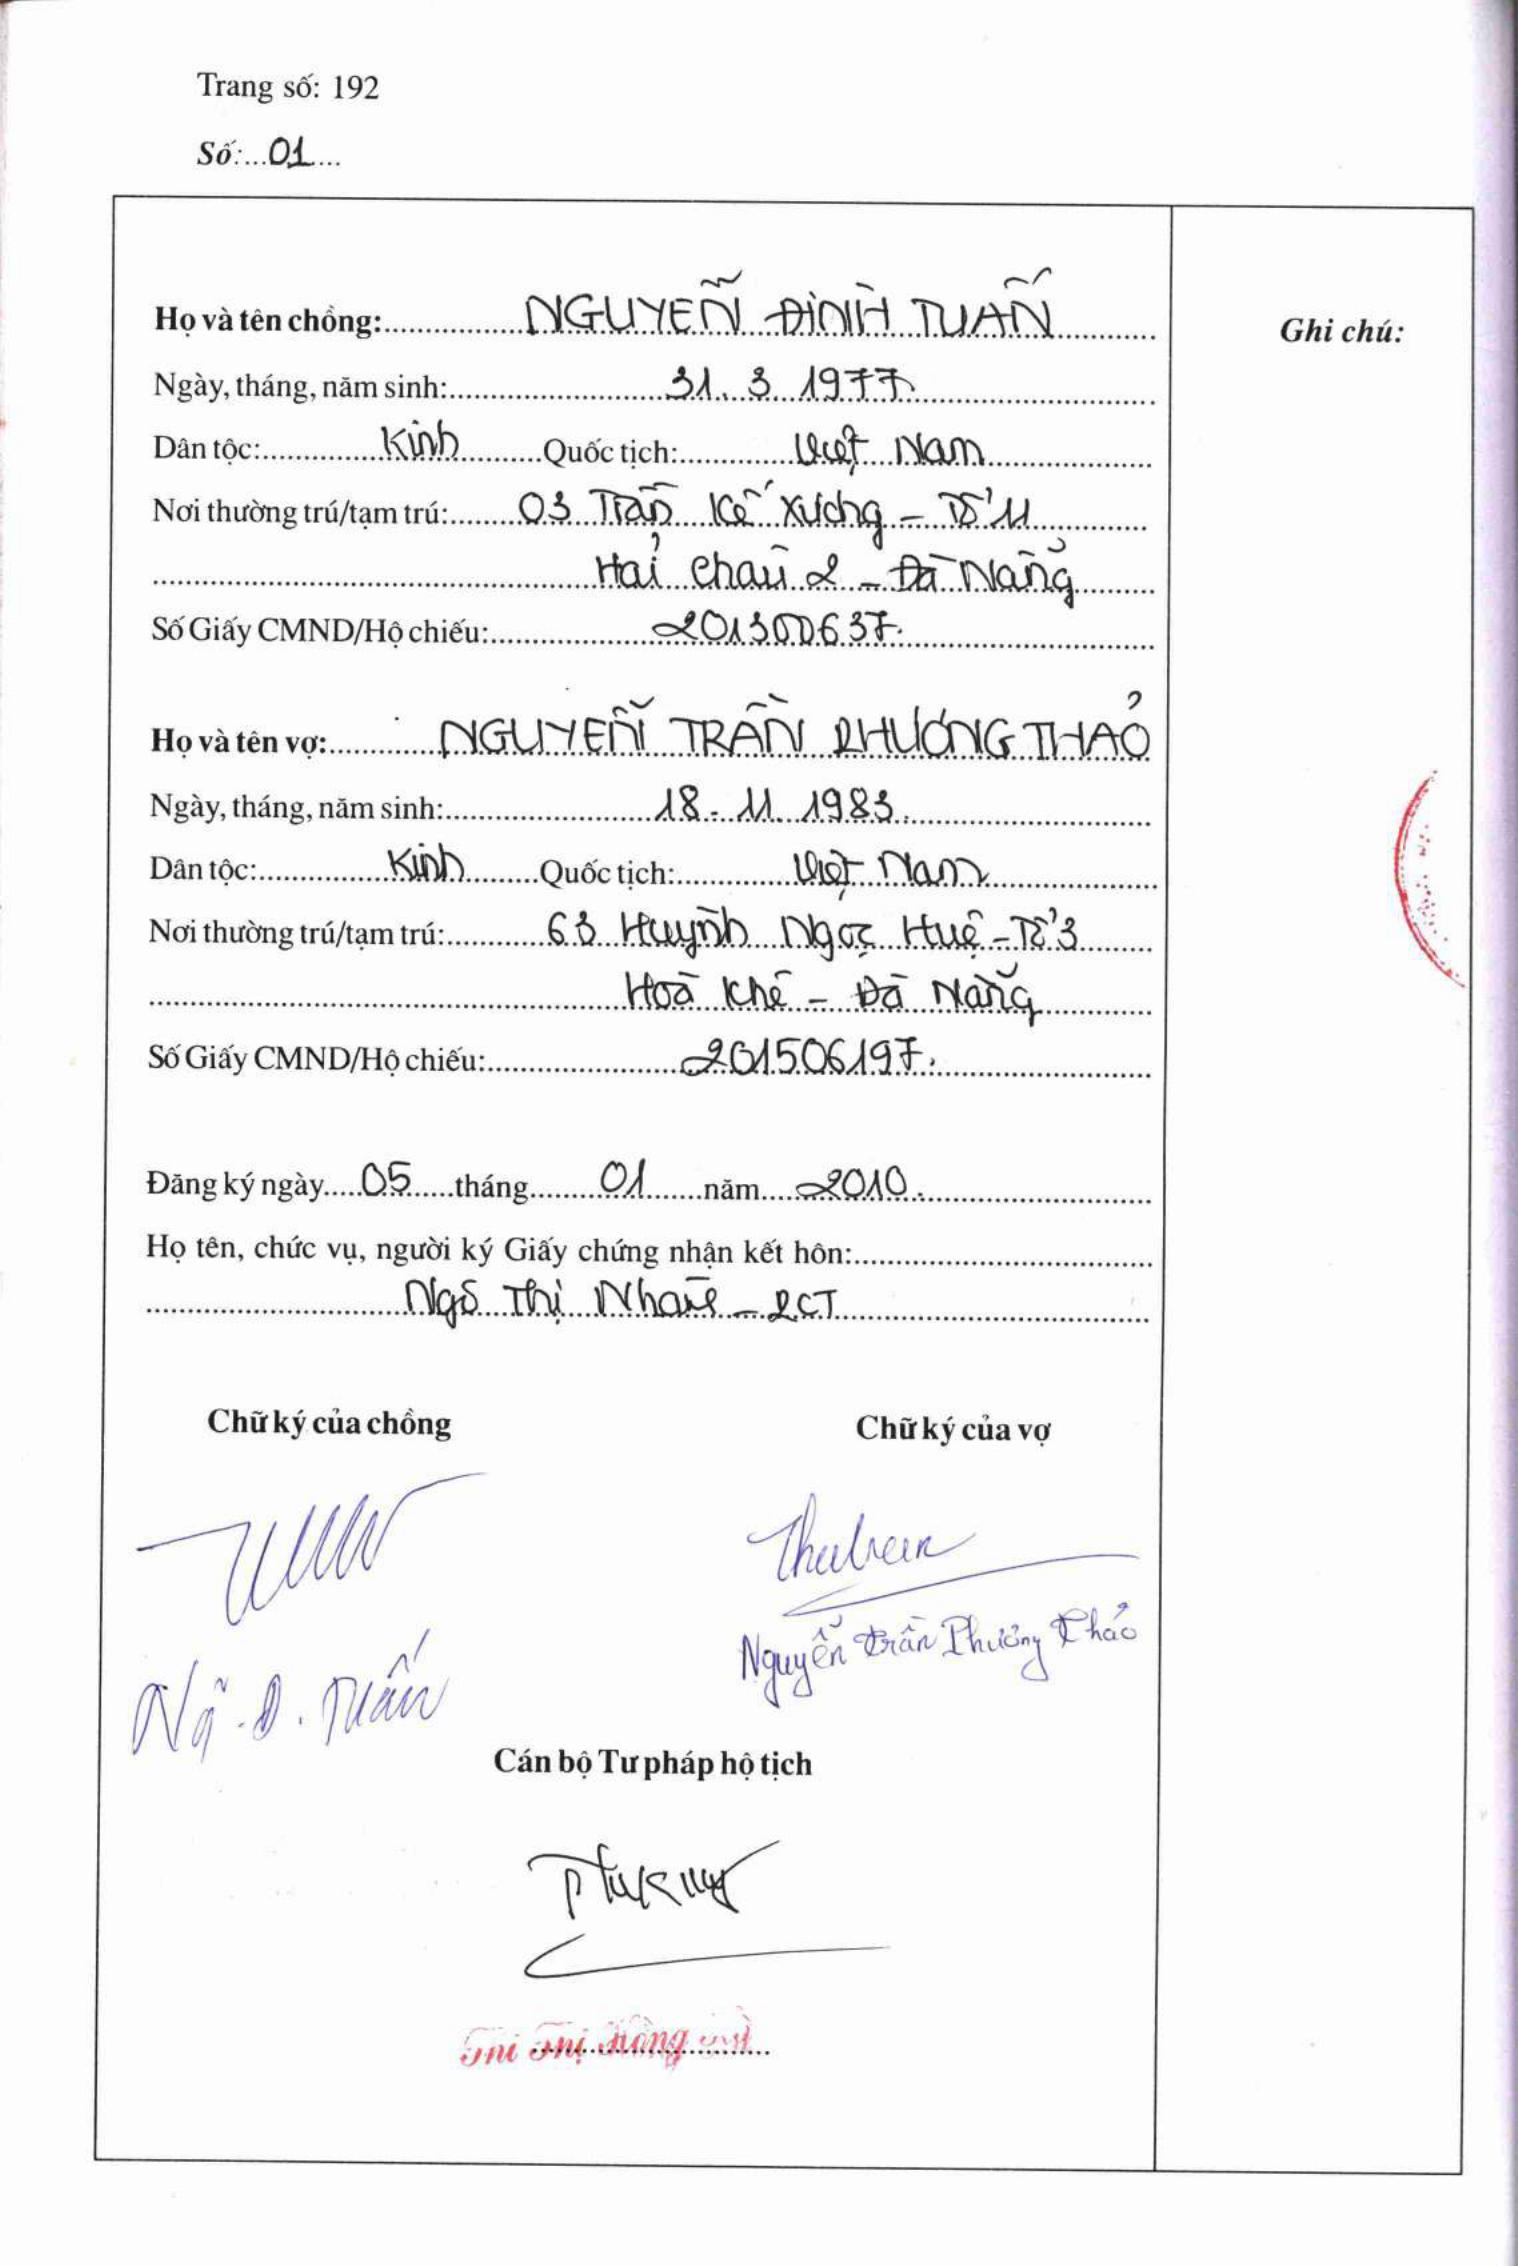 Trang số: 192
Số: 01
Họ và tên chồng: NGUYỄN ĐÌNH TUẤN
Ghi chú:
Ngày, tháng, năm sinh: 31. 3. 1977
Dân tộc: Kinh Quốc tịch: Việt Nam
Nơi thường trú/tạm trú: 03 Trần Kế Xương - Tổ 11
Hải Châu 2 - Đà Nẵng
Số Giấy CMND/Hộ chiếu: 201300637.
Họ và tên vợ: NGUYỄN TRẦN PHƯƠNG THẢO
Ngày, tháng, năm sinh: 18. 11. 1983.
Dân tộc: Kinh Quốc tịch: Việt Nam
Nơi thường trú/tạm trú: 63 Huỳnh Ngọc Huệ - Tổ 3
Hoà Khê - Đà Nẵng
Số Giấy CMND/Hộ chiếu: 201506197.
Đăng ký ngày 05 tháng 01 năm 2010.
Họ tên, chức vụ, người ký Giấy chứng nhận kết hôn:
Ngô Thị - PCT
Chữ ký của chồng
Chữ ký của vợ
Nguyễn Trần Phương Thảo
Ng~. Đ. Tuấn
Cán bộ Tư pháp hộ tịch
Thị